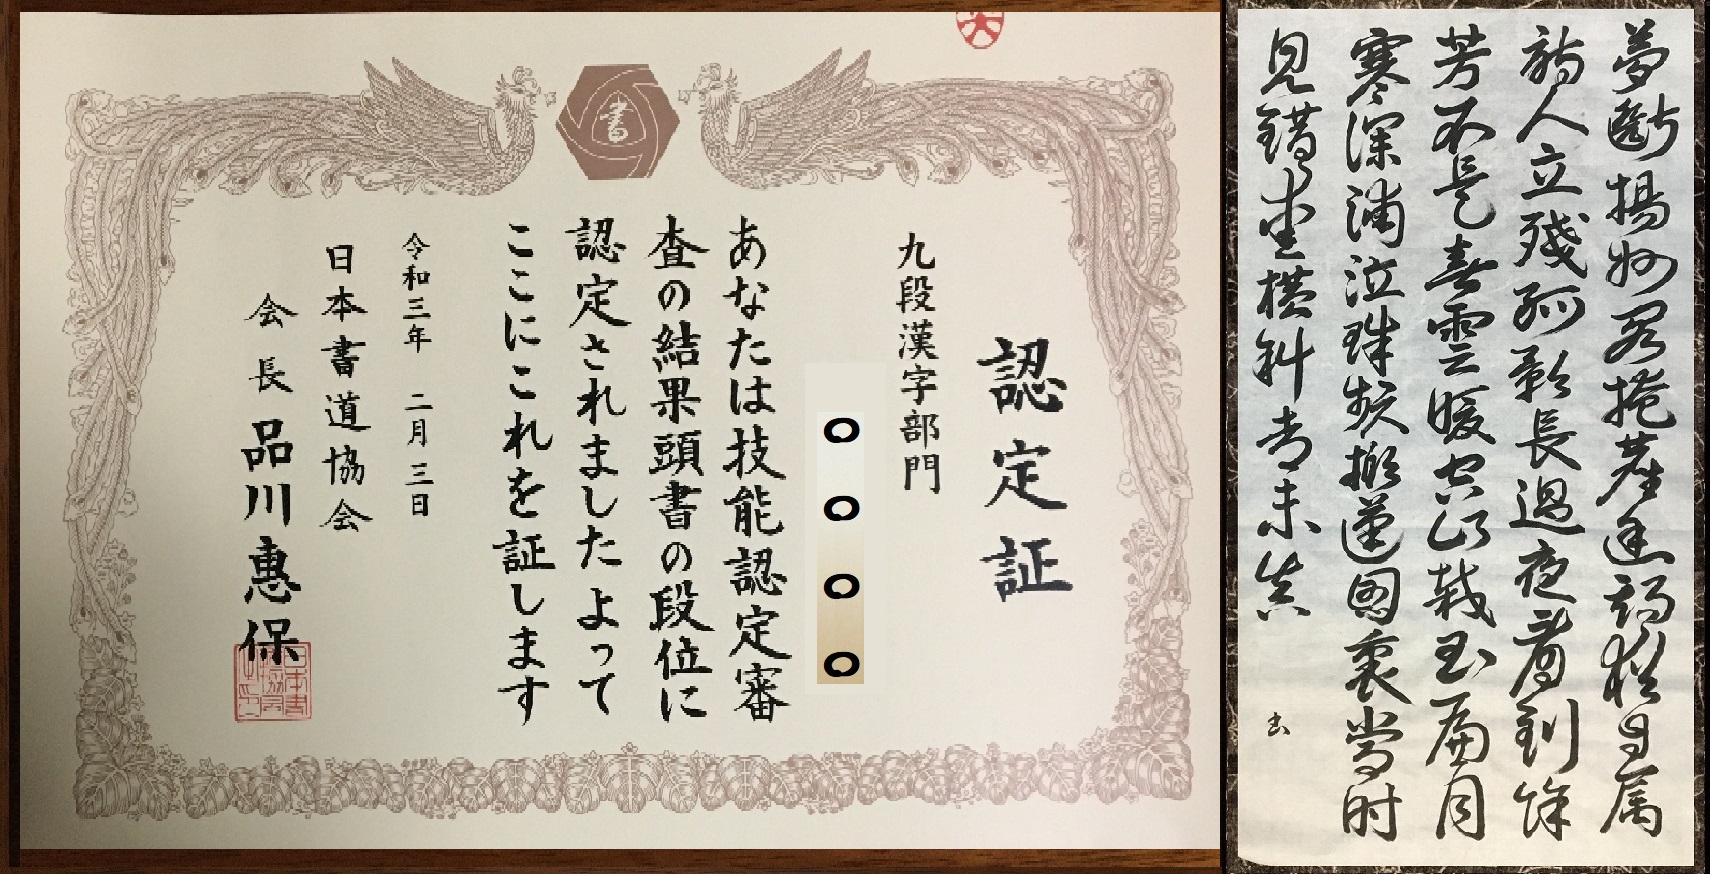 認定証
九段漢字部門
〇〇〇〇
あなたは技能認定審
査の結果頭書の段位に
認定されましたよって
ここにこれを証します
令和三年 二月三日
日本書道協会
会長 品川惠保
書
夢斷揚州閣掩塵幽期猶自属
詩人立殘孤影長過夜看到餘
芳不是春雲暖空山栽玉扁月
寒深浦泣珠頻掀蓬圖裏當时
見錯愛橫斜却未真